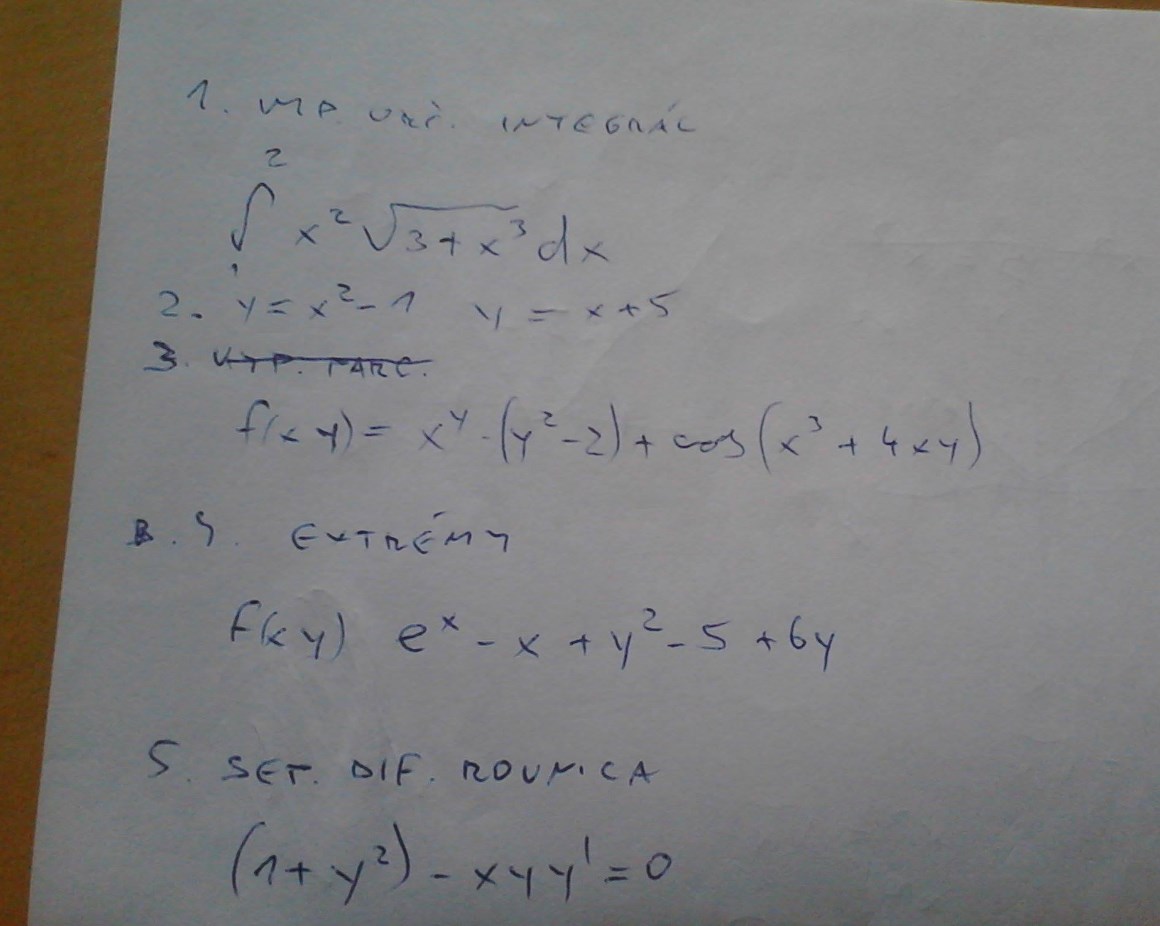 1. VYP. URČ. INTEGRÁL
∫₁² x²√(3+x³) dx
2. y = x²-1 y = x+5
3. VYP. PARC.
f(x y) = x^y · (y²-2) + cos(x³ + 4xy)
B. 4. EXTRÉMY
f(x y) e^x - x + y² - 5 + 6y
5. SEP. DIF. ROVNICA
(1+y²) - xyy' = 0